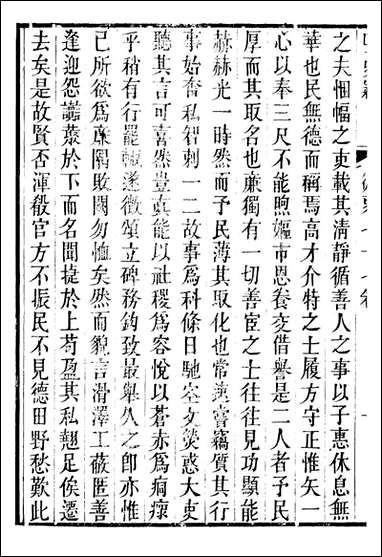 之夫悃愊之吏載其清靜循善人之事以子惠休息無
華也民無德而稱焉高才介特之士履方守正惟矢一
心以奉三尺不能煦嫗市恩養交借譽是二人者予民
厚而其取名也亷獨有一切善宦之士往往見功顯能
赫赫光一時然而予民薄其取化也常嘗竊質其行
事始奮私智刺一二故事爲科條日馳文熒惑大吏
聽其言可喜然豈眞能以社稷爲容悅以蒼赤爲痌瘝
乎稍有行罷輒遂徵頌立碑務鈎致最舉久之卽亦惟
己所欲爲亷隅敗闕勿恤矣然而貌言滑澤工蔽匿善
逢迎怨讟叢於下而名聞㨗於上苟盈其私翹足俟遷
去矣是故賢否渾殽官方不振民不見德田野愁歎此